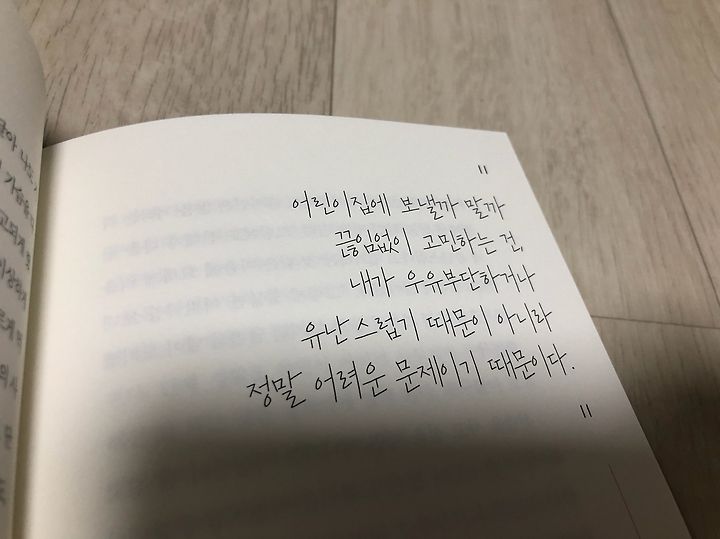 "
어린이집에 보낼까 말까
끊임없이 고민하는 건,
내가 우유부단하거나
유난스럽기 때문이 아니라
정말 어려운 문제이기 때문이다.
"